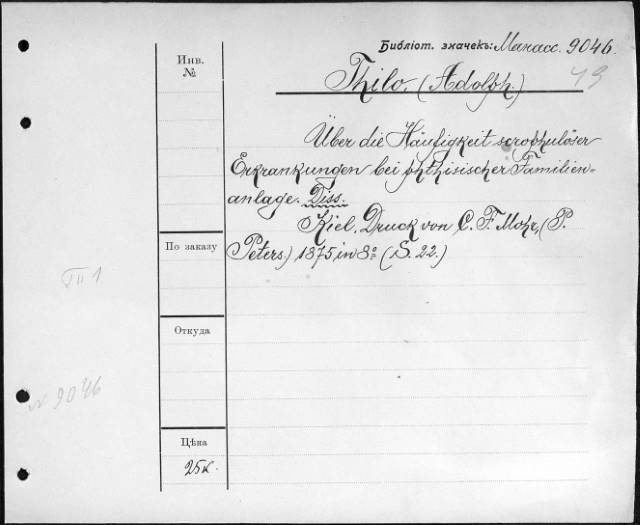 Библіот. значекъ: Манасс. 9046.
Инв.
№
Thilo, (Adolph.)
Über die Häufigkeit scrophulöser
Erkrankungen bei phthisischer Familien-
anlage. Diss.
Kiel, Druck von C. F. Mohr, (P.
Peters.) 1875, in 8º (S. 22.)
По заказу
Откуда
N 9046
Цѣна
25к.